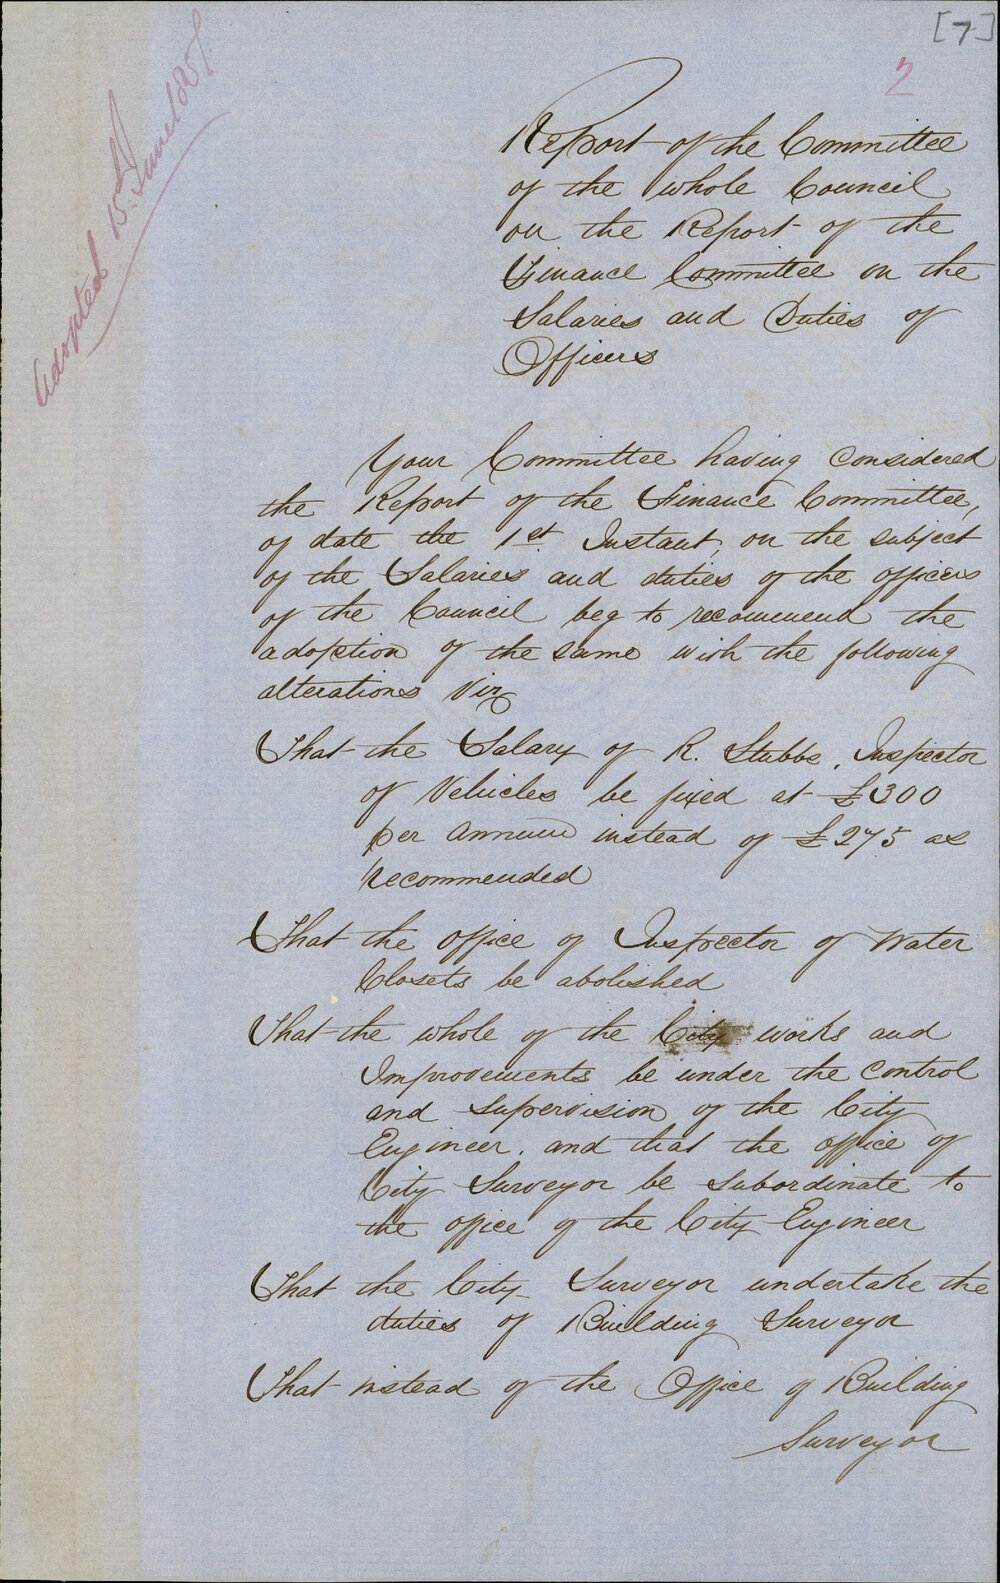 [7]
2
Adopted 15th June 1857.
Report of the Committee
of the whole Council
on the Report of the
Finance Committee on the
Salaries and Duties of
Officers
Your Committee having considered
the Report of the Finance Committee,
of date the 1st. Instant, on the subject
of the Salaries and duties of the officers
of the Council beg to recommend the
adoption of the same with the following
alterations Viz
That the Salary of R. Stubbs, Inspector
of Vehicles be fixed at £300
per Annum instead of £275 as
recommended
That the office of Inspector of Water
Closets be abolished
That the whole of the City works and
Improvements be under the Control
and Supervision of the City
Engineer. and that the office of
City Surveyor be Subordinate to
the office of the City Engineer
That the City Surveyor undertake the
duties of Building Surveyor
That instead of the Office of Building
Surveyor